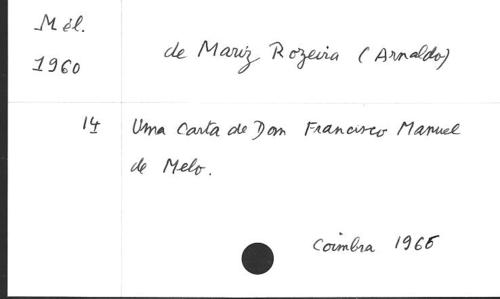 Mél.
1960
de Mariz Rozeira (Arnaldo)
14 Uma Carta de Dom Francisco Manuel
de Melo.
Coimbra 1965